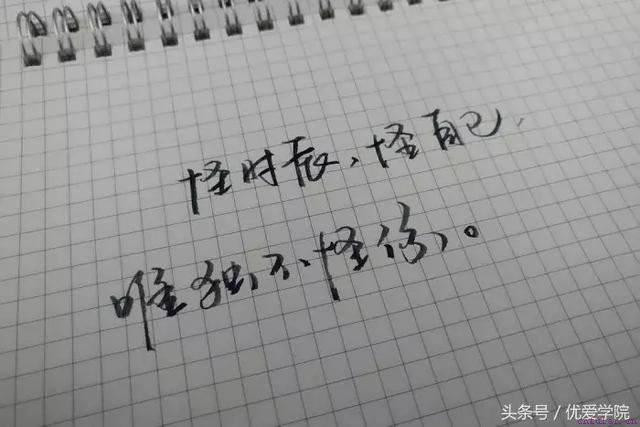 怪时辰、怪自己,
唯独不怪你。
头条号 / 优爱学院